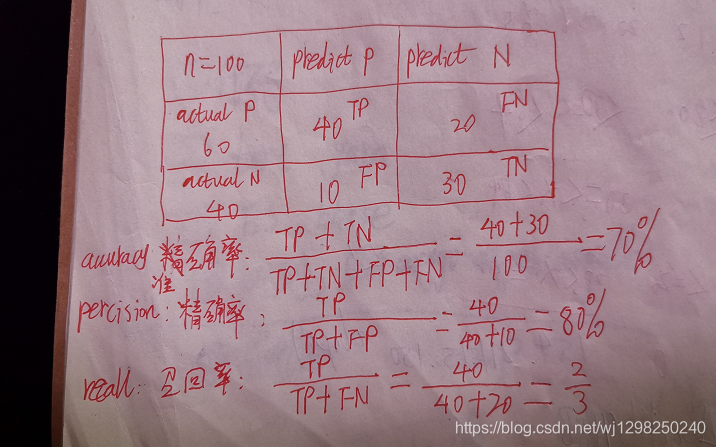 n=100 predict P predict N
actual P 60 40 TP 20 FN
actual N 40 10 FP 30 TN
accuracy 准确率: TP+TN / TP+TN+FP+FN = 40+30 / 100 = 70%
percision: 精确率: TP / TP+FP = 40 / 40+10 = 80%
recall: 召回率: TP / TP+FN = 40 / 40+20 = 2 / 3
https://blog.csdn.net/wj1298250240